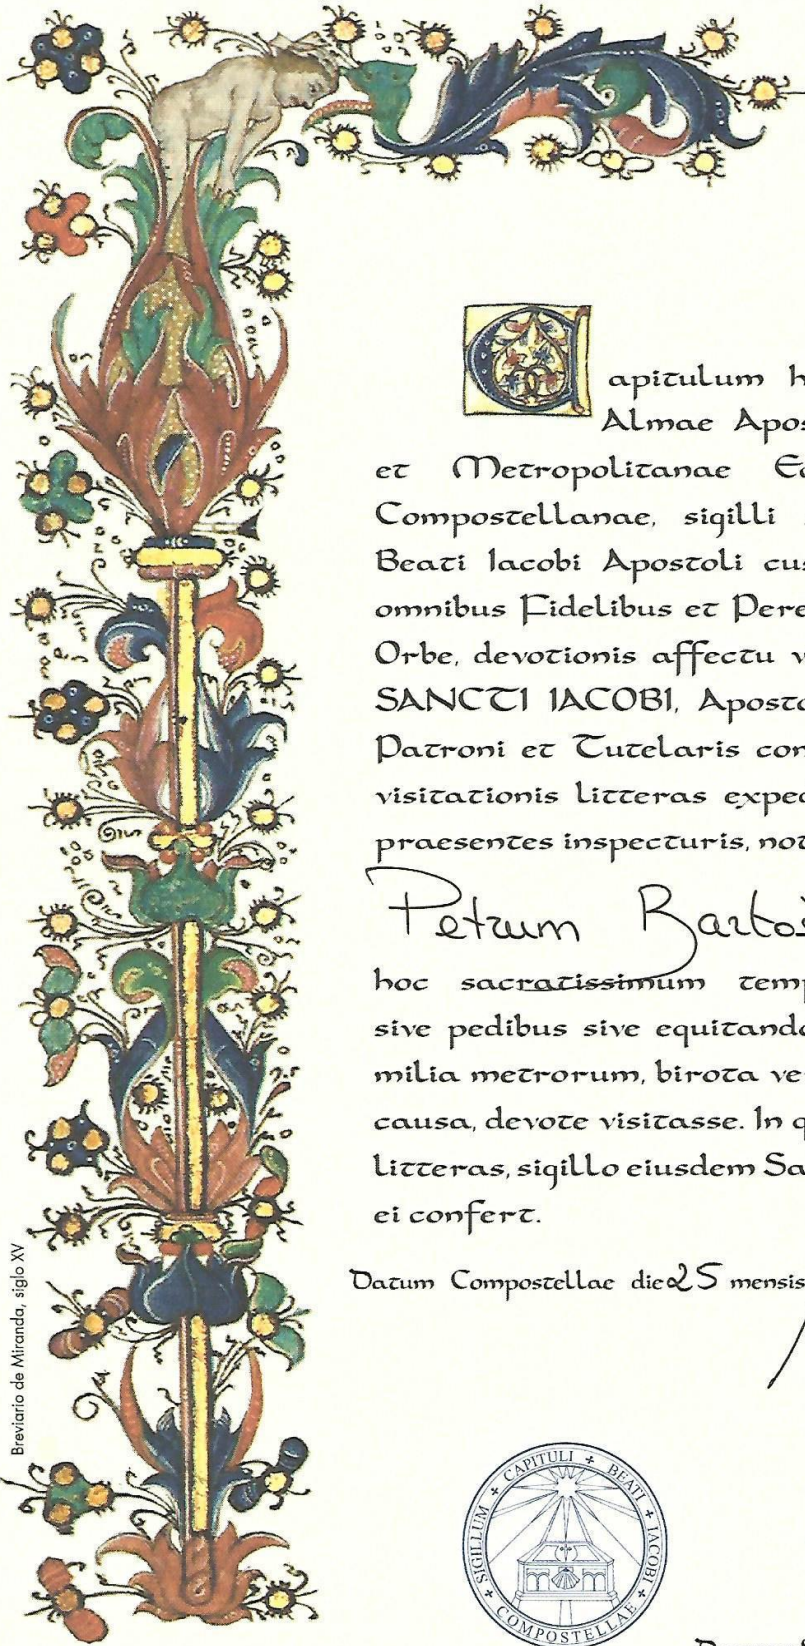 Capitulum h
Almae Apos
et Metropolitanae Ec
Compostellanae, sigilli
Beati Iacobi Apostoli cus
omnibus Fidelibus et Pere
Orbe, devotionis affectu v
SANCTI IACOBI, Aposto
Patroni et Tutelaris con
visitationis litteras exped
praesentes inspecturis, not
Petrum Bartoš
hoc sacratissimum temp
sive pedibus sive equitando
milia metrorum, birota ve
causa, devote visitasse. In q
litteras, sigillo eiusdem Sa
ei confert.
Datum Compostellae die 25 mensis
Breviario de Miranda, siglo XV
SIGILLUM + CAPITULI + BEATI + IACOBI + COMPOSTELLAE +